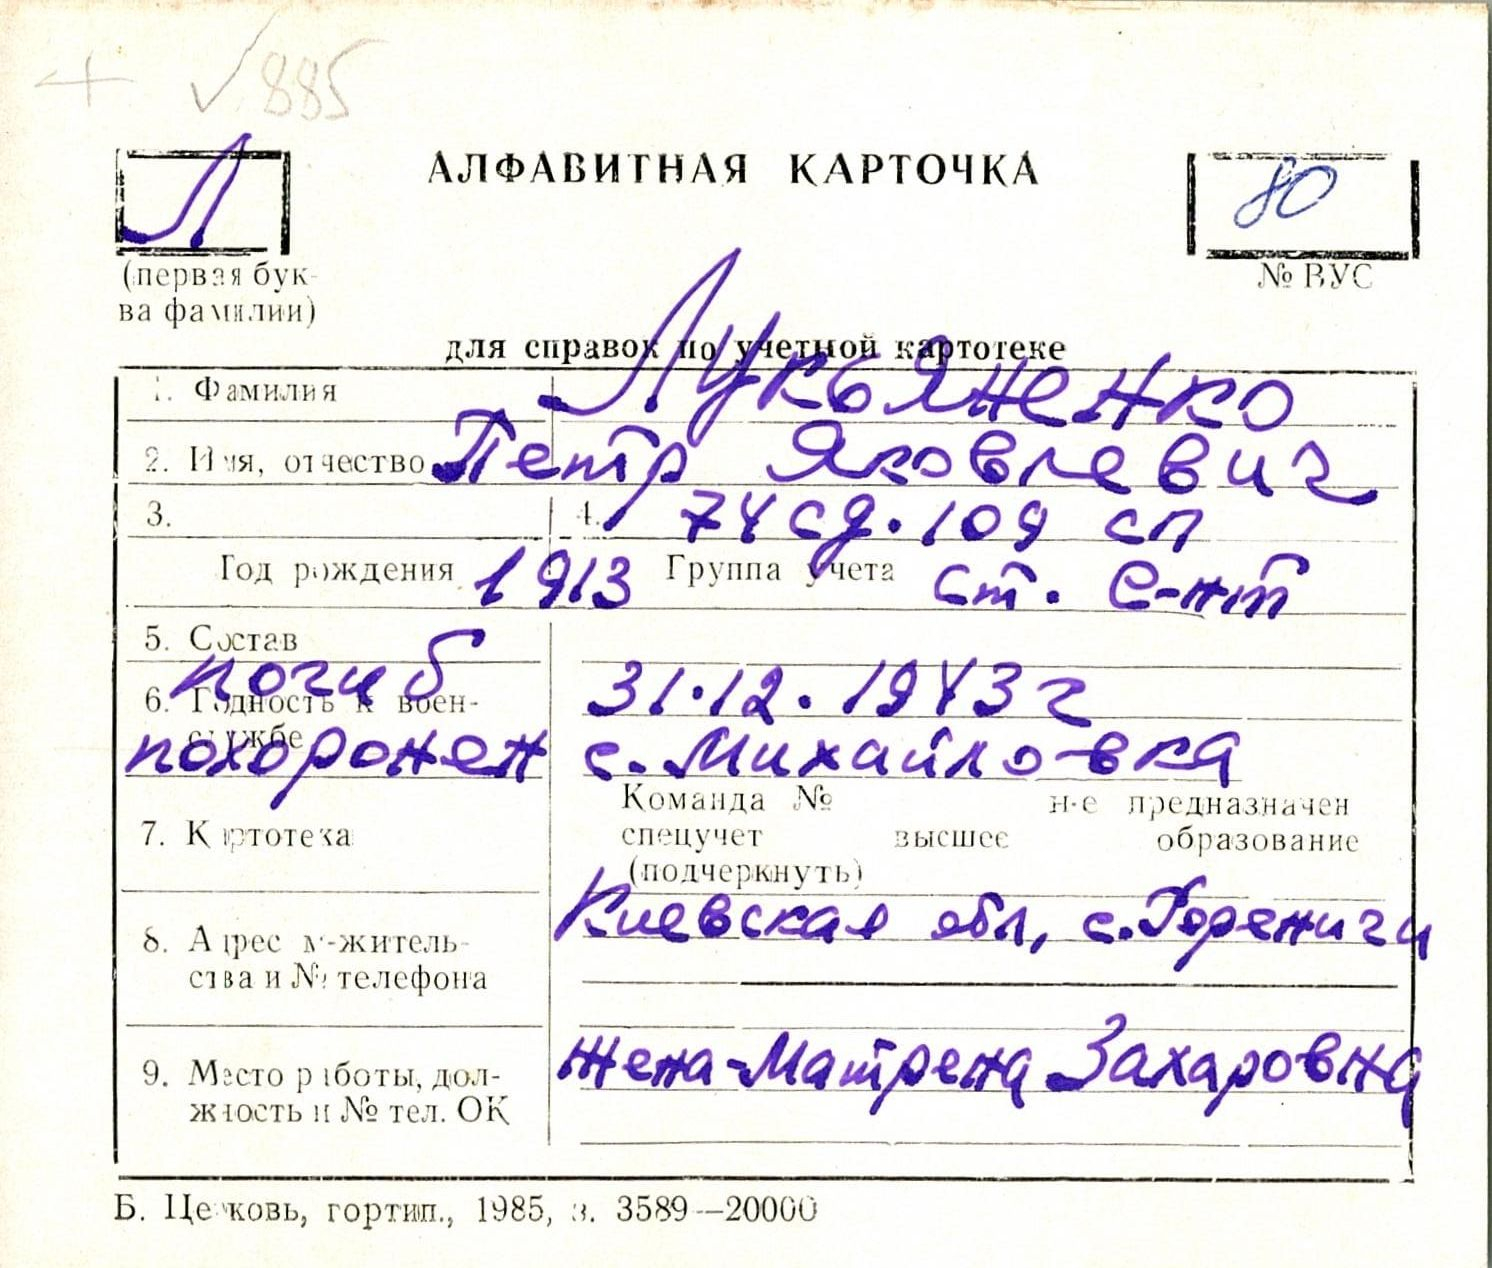 + √ 885
Л
АЛФАВИТНАЯ КАРТОЧКА
80
(первая бук-
ва фамилии)
№ ВУС
для справок по учетной картотеке
1. Фамилия Лукьяненко
2. Имя, отчество Петр Яковлевич
3. 4. 74 сд. 109 сп
Год рождения 1913 Группа учета ст. С-нт
5. Состав
погиб 31.12.1943 г
6. Годность к воен-
службе
похоронен с. Михайловка
Команда № н-е предназначен
7. Картотека спецучет высшее образование
(подчеркнуть)
Киевская обл, с.
8. Адрес м-житель-
ства и № телефона
Жена - Матрена Захаровна
9. Место работы, дол-
жность и № тел. ОК
Б. Церковь, гортип., 1985, з. 3589—20000